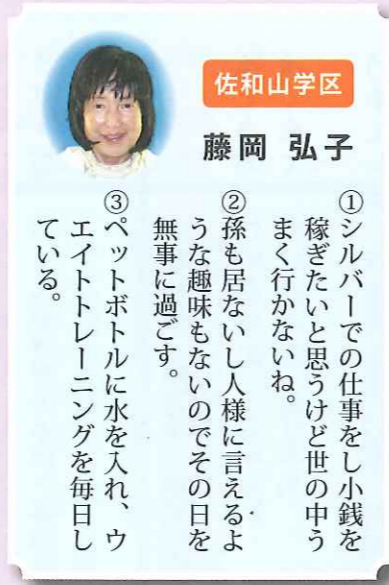 佐和山学区
藤岡 弘子
①シルバーでの仕事をし小銭を
稼ぎたいと思うけど世の中う
まく行かないね。
②孫も居ないし人様に言えるよ
うな趣味もないのでその日を
無事に過ごす。
③ペットボトルに水を入れ、ウ
エイトトレーニングを毎日し
ている。